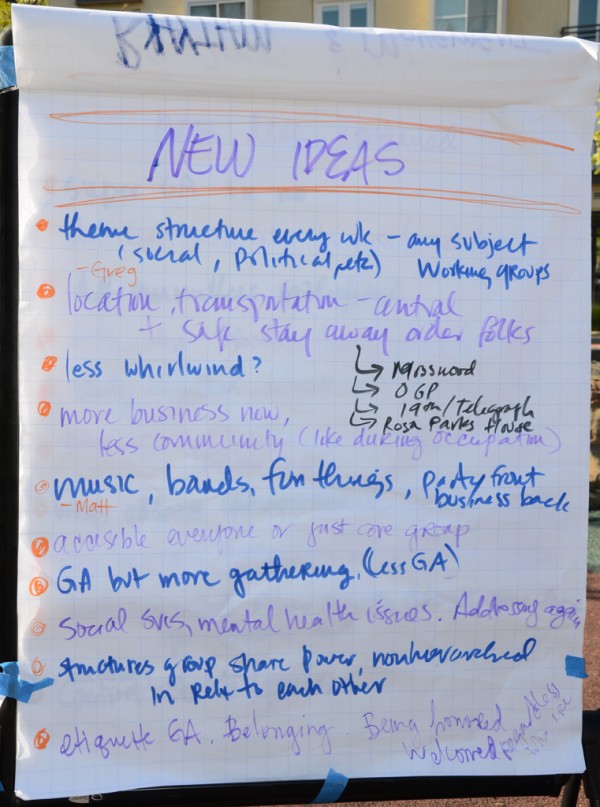 NEW IDEAS
theme structure every wk - any subject
(social, political, etc.) Working groups
-Greg
location, transportation - central
+ safe stay away order folks
less whirlwind?
Mosswood
OGP
19th/Telegraph
Rosa Parks House
more business now,
less community (like during occupation)
music, bands, fun things, party front
business back
-Matt
accesible everyone or just core group
GA but more gathering, (less GA)
Social svcs, mental health issues. Addressing again
structures group share power, nonhierarched
in relx to each other
etiquette GA. Belonging. Being honored
Welcomed regardless